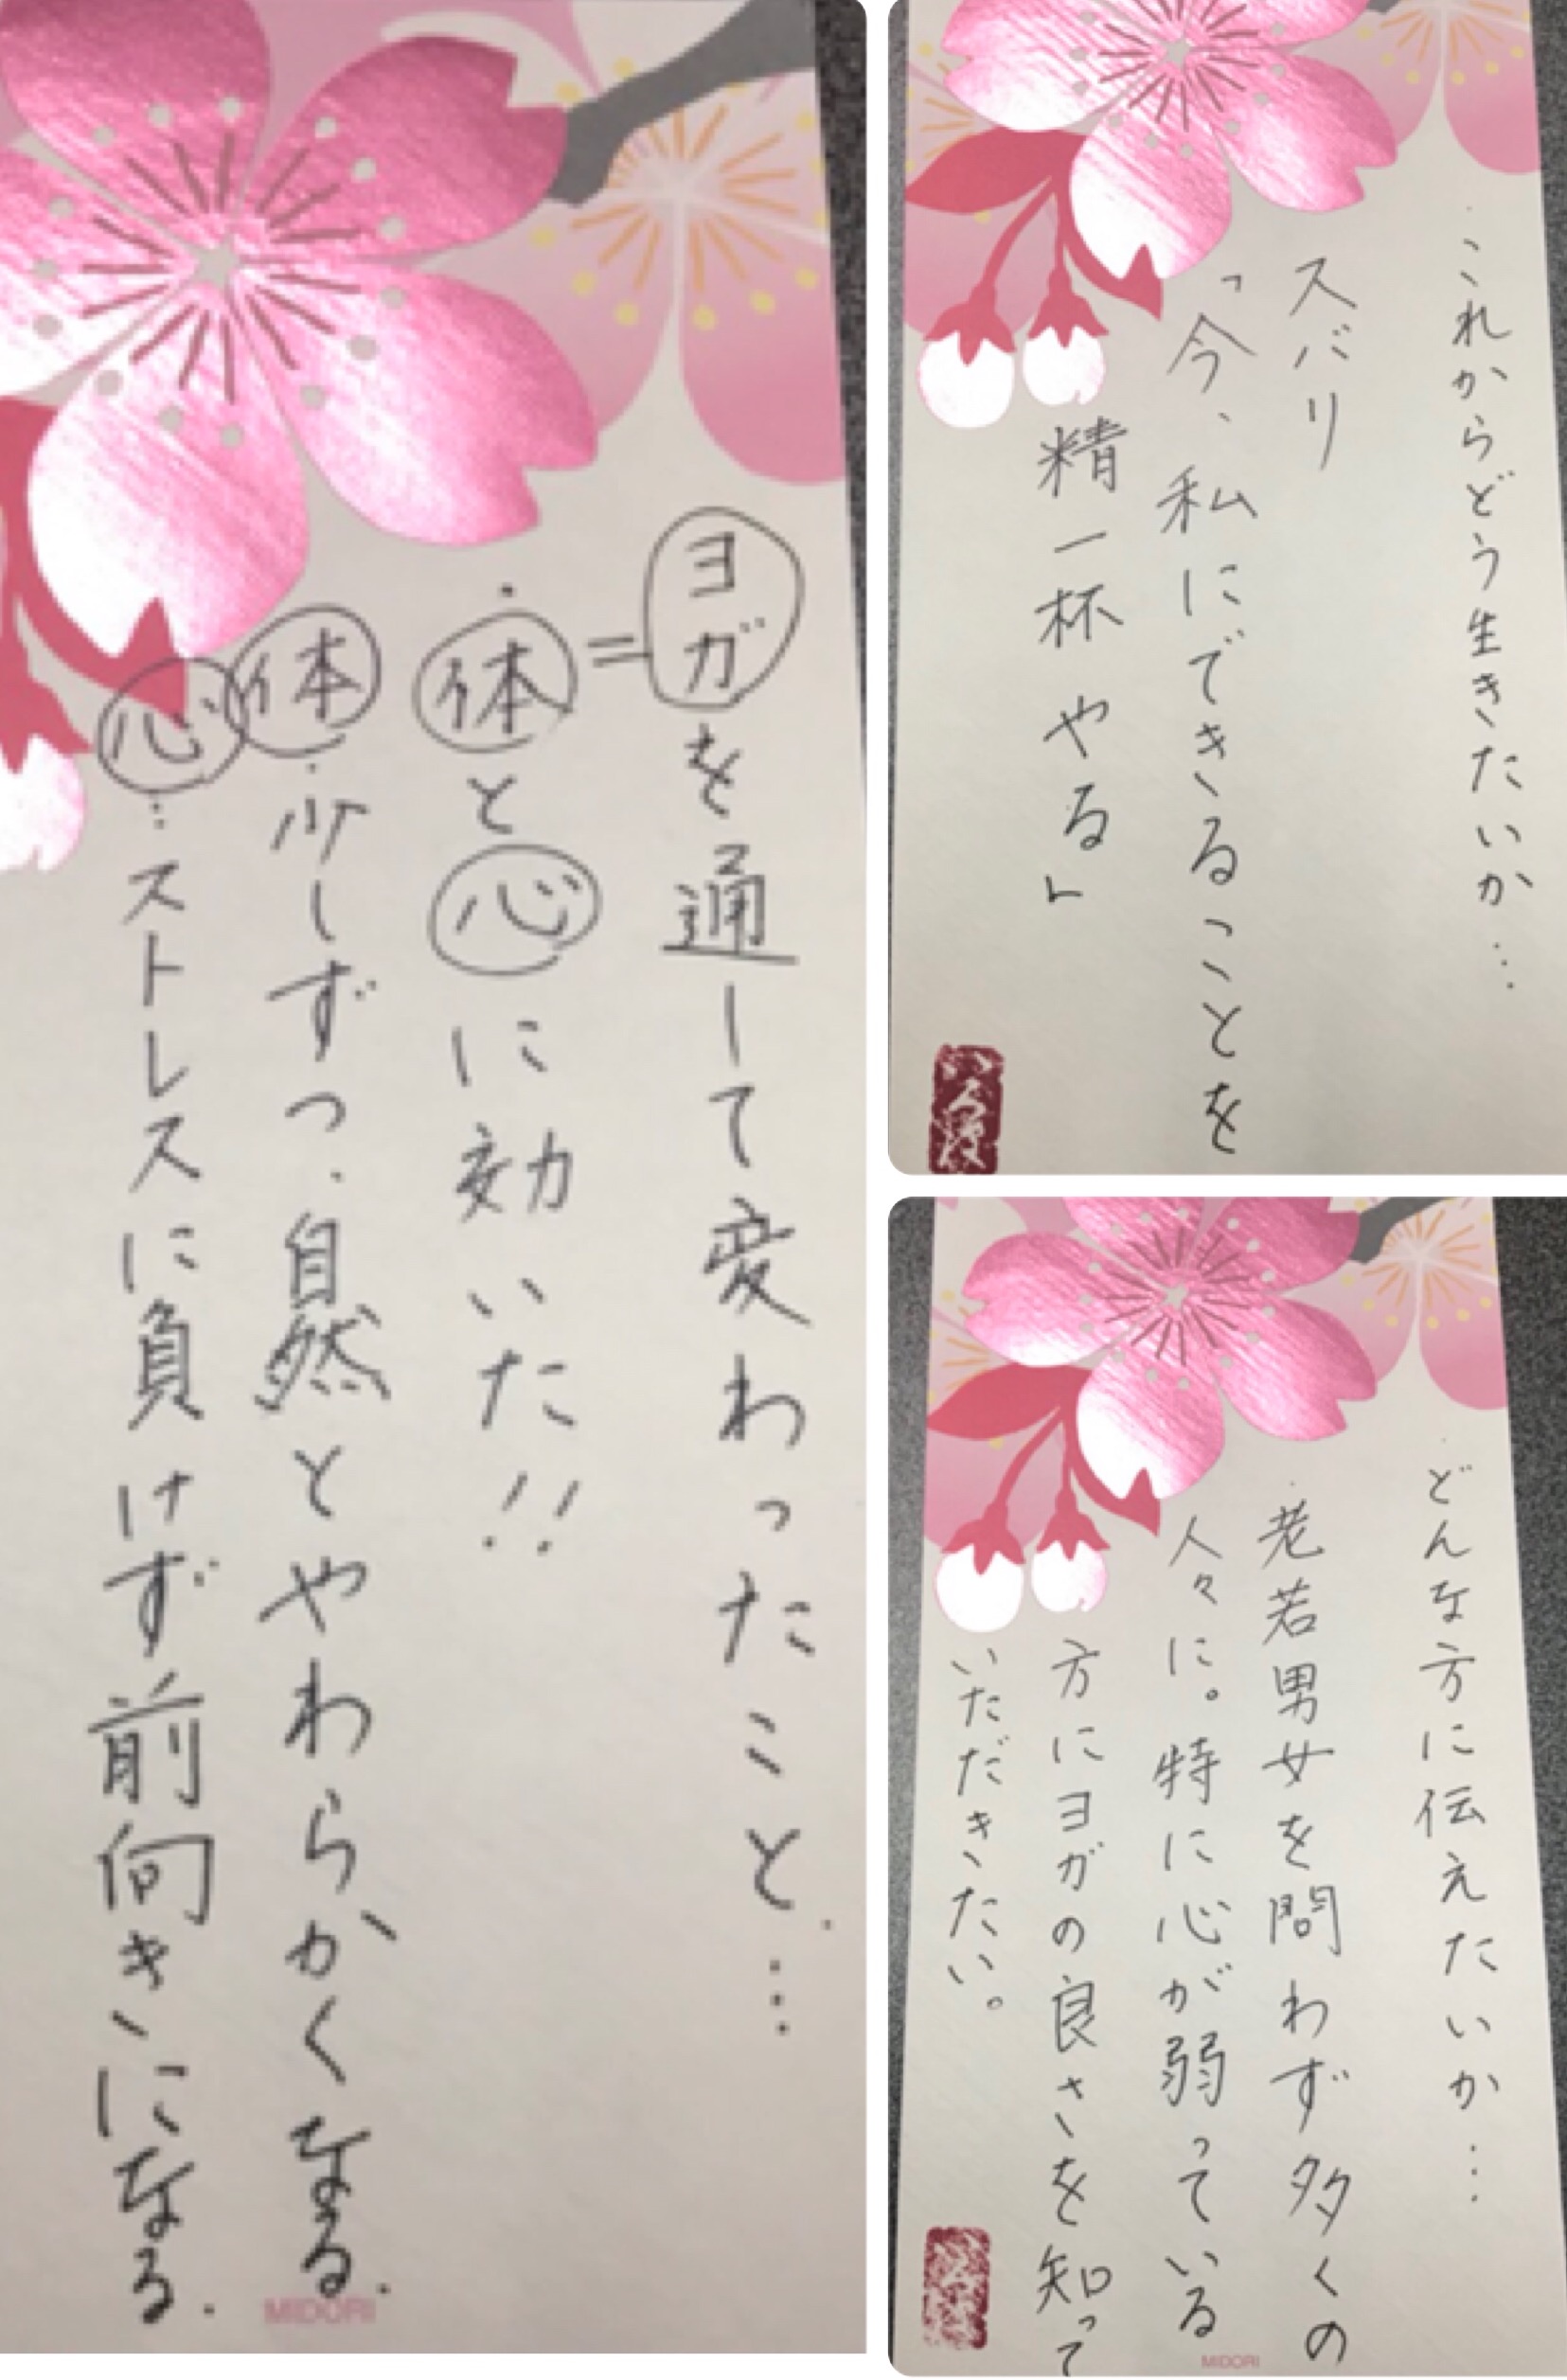 ヨガを通して変わったこと…
=
・体と心に効いた!!
体…少しずつ、自然とやわらかくなる。
心…ストレスに負けず前向きになる。
MIDORI
これからどう生きたいか…
ズバリ
「今、私にできることを
精一杯やる」
どんな方に伝えたいか…
老若男女を問わず多くの
人々に。特に心が弱っている
方にヨガの良さを知って
いただきたい。
MIDORI